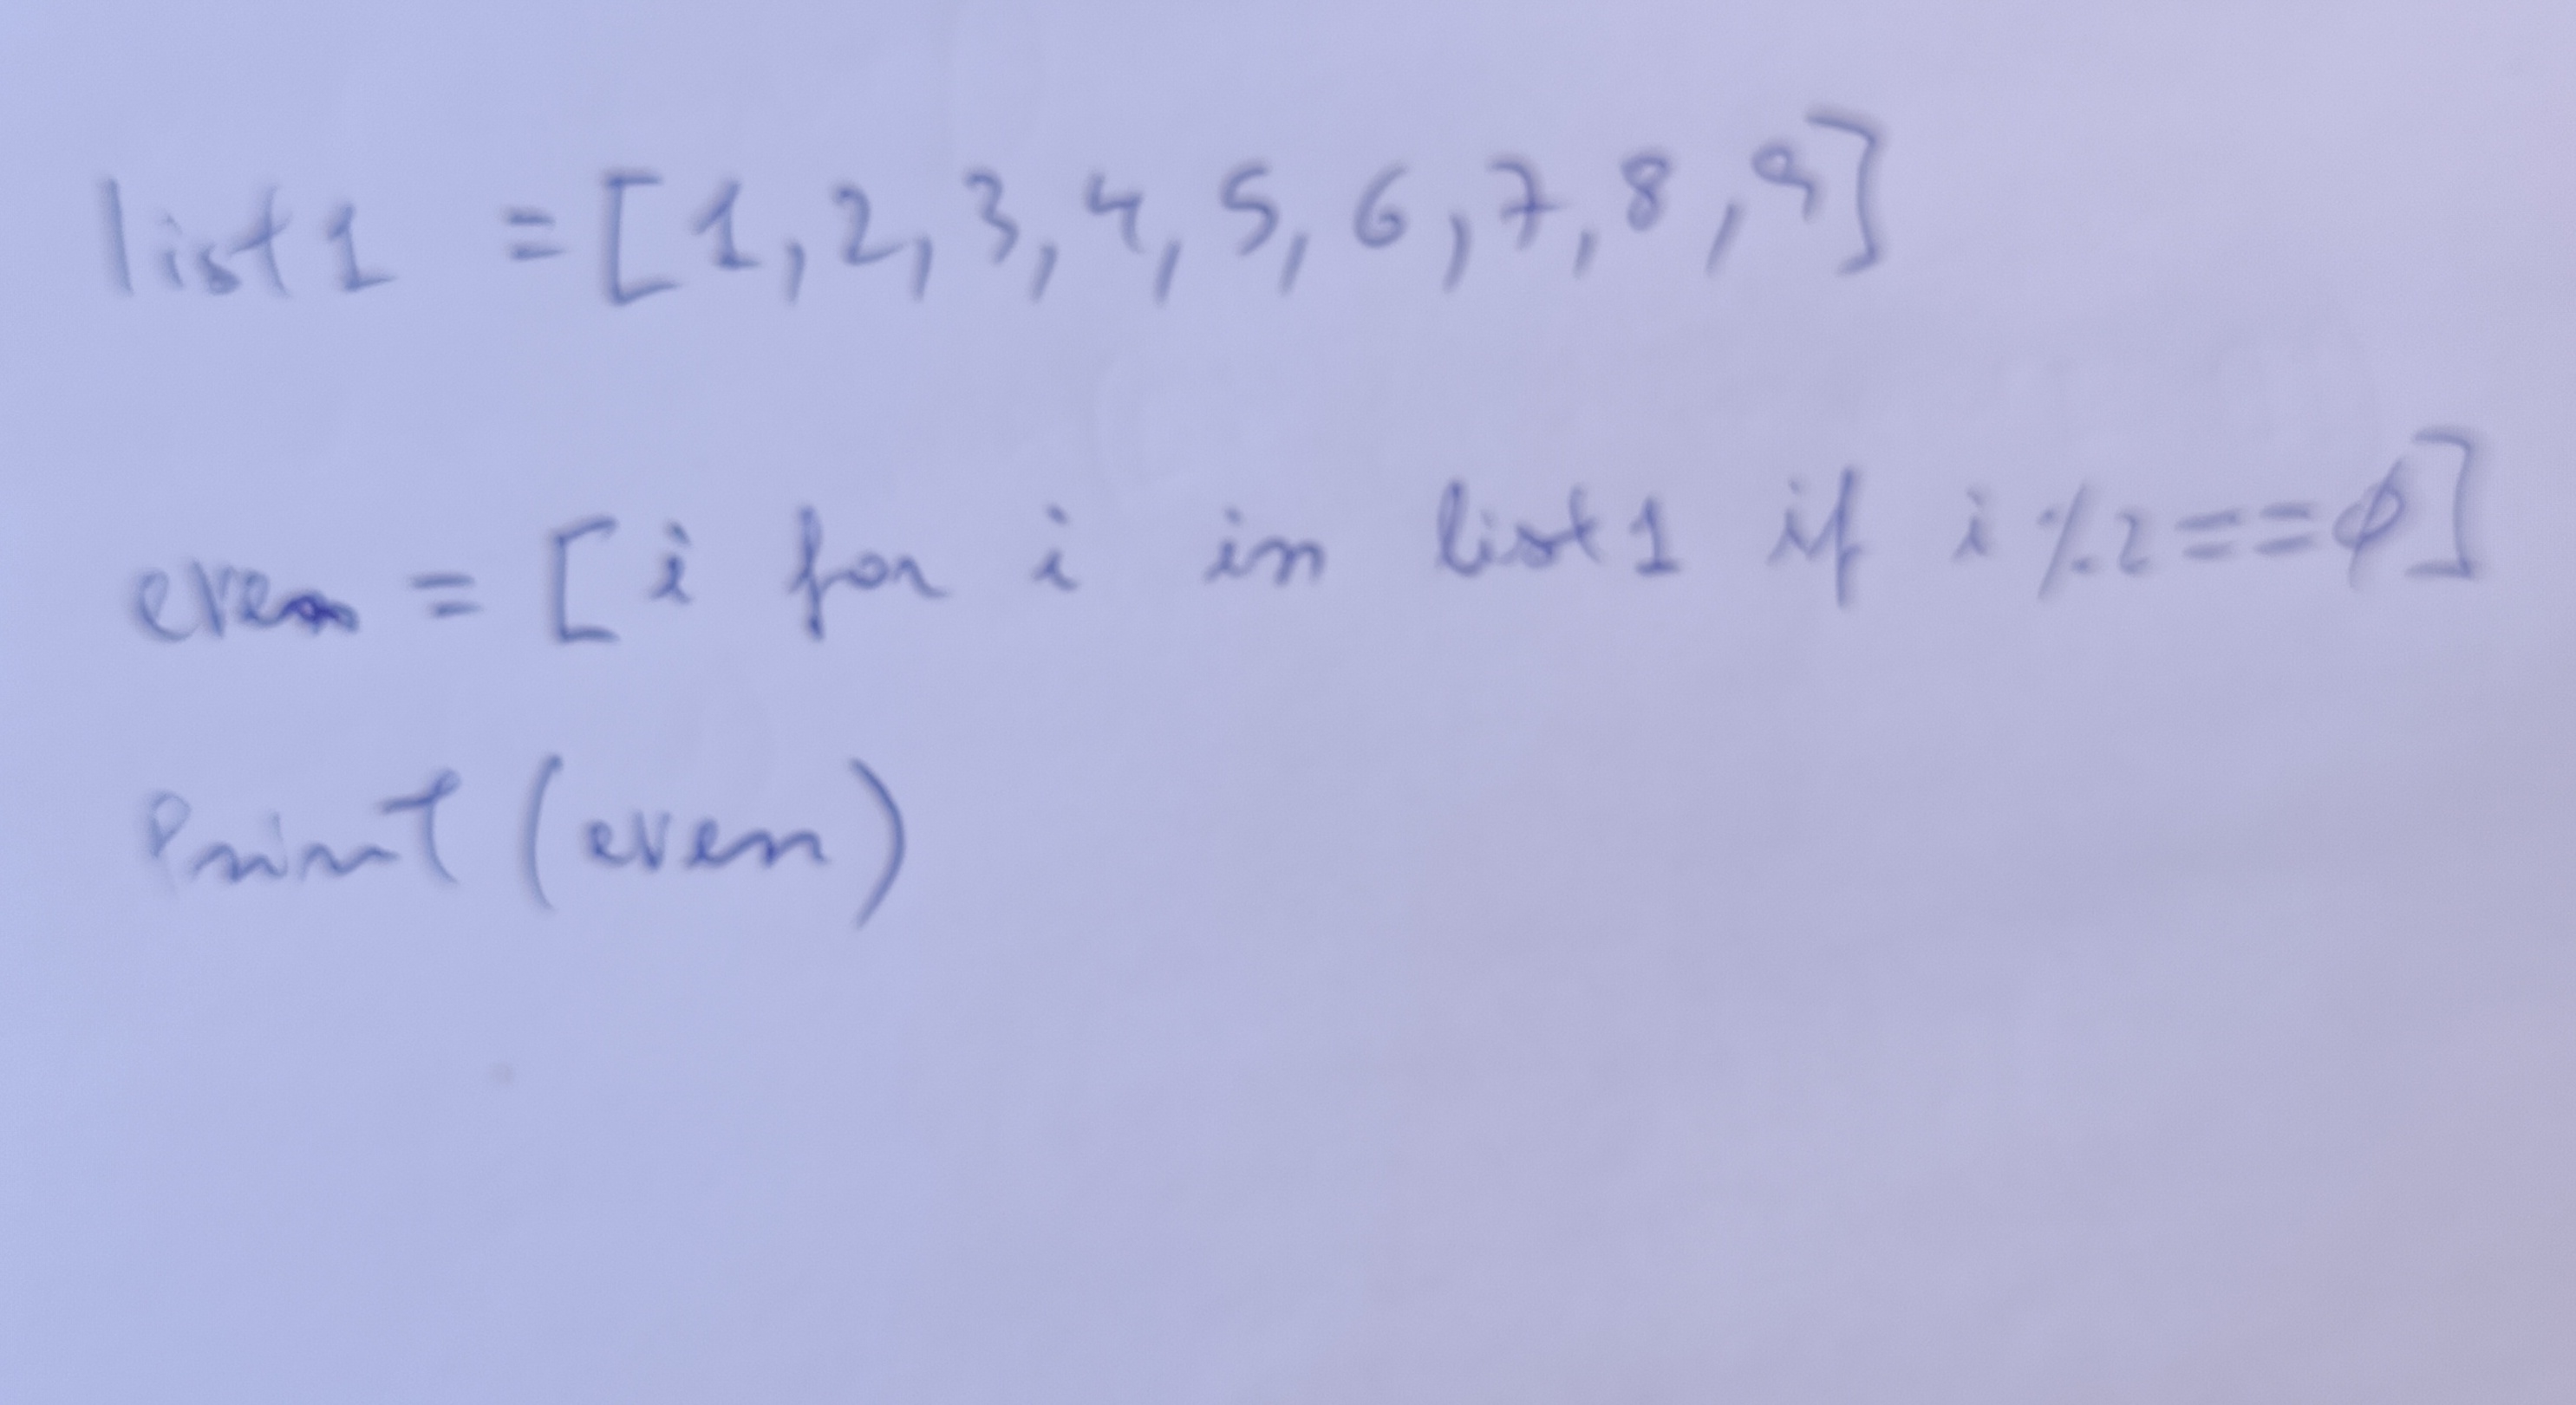 list1 = [1,2,3,4,5,6,7,8,9]
even = [i for i in list1 if i%2==0]
Print(even)